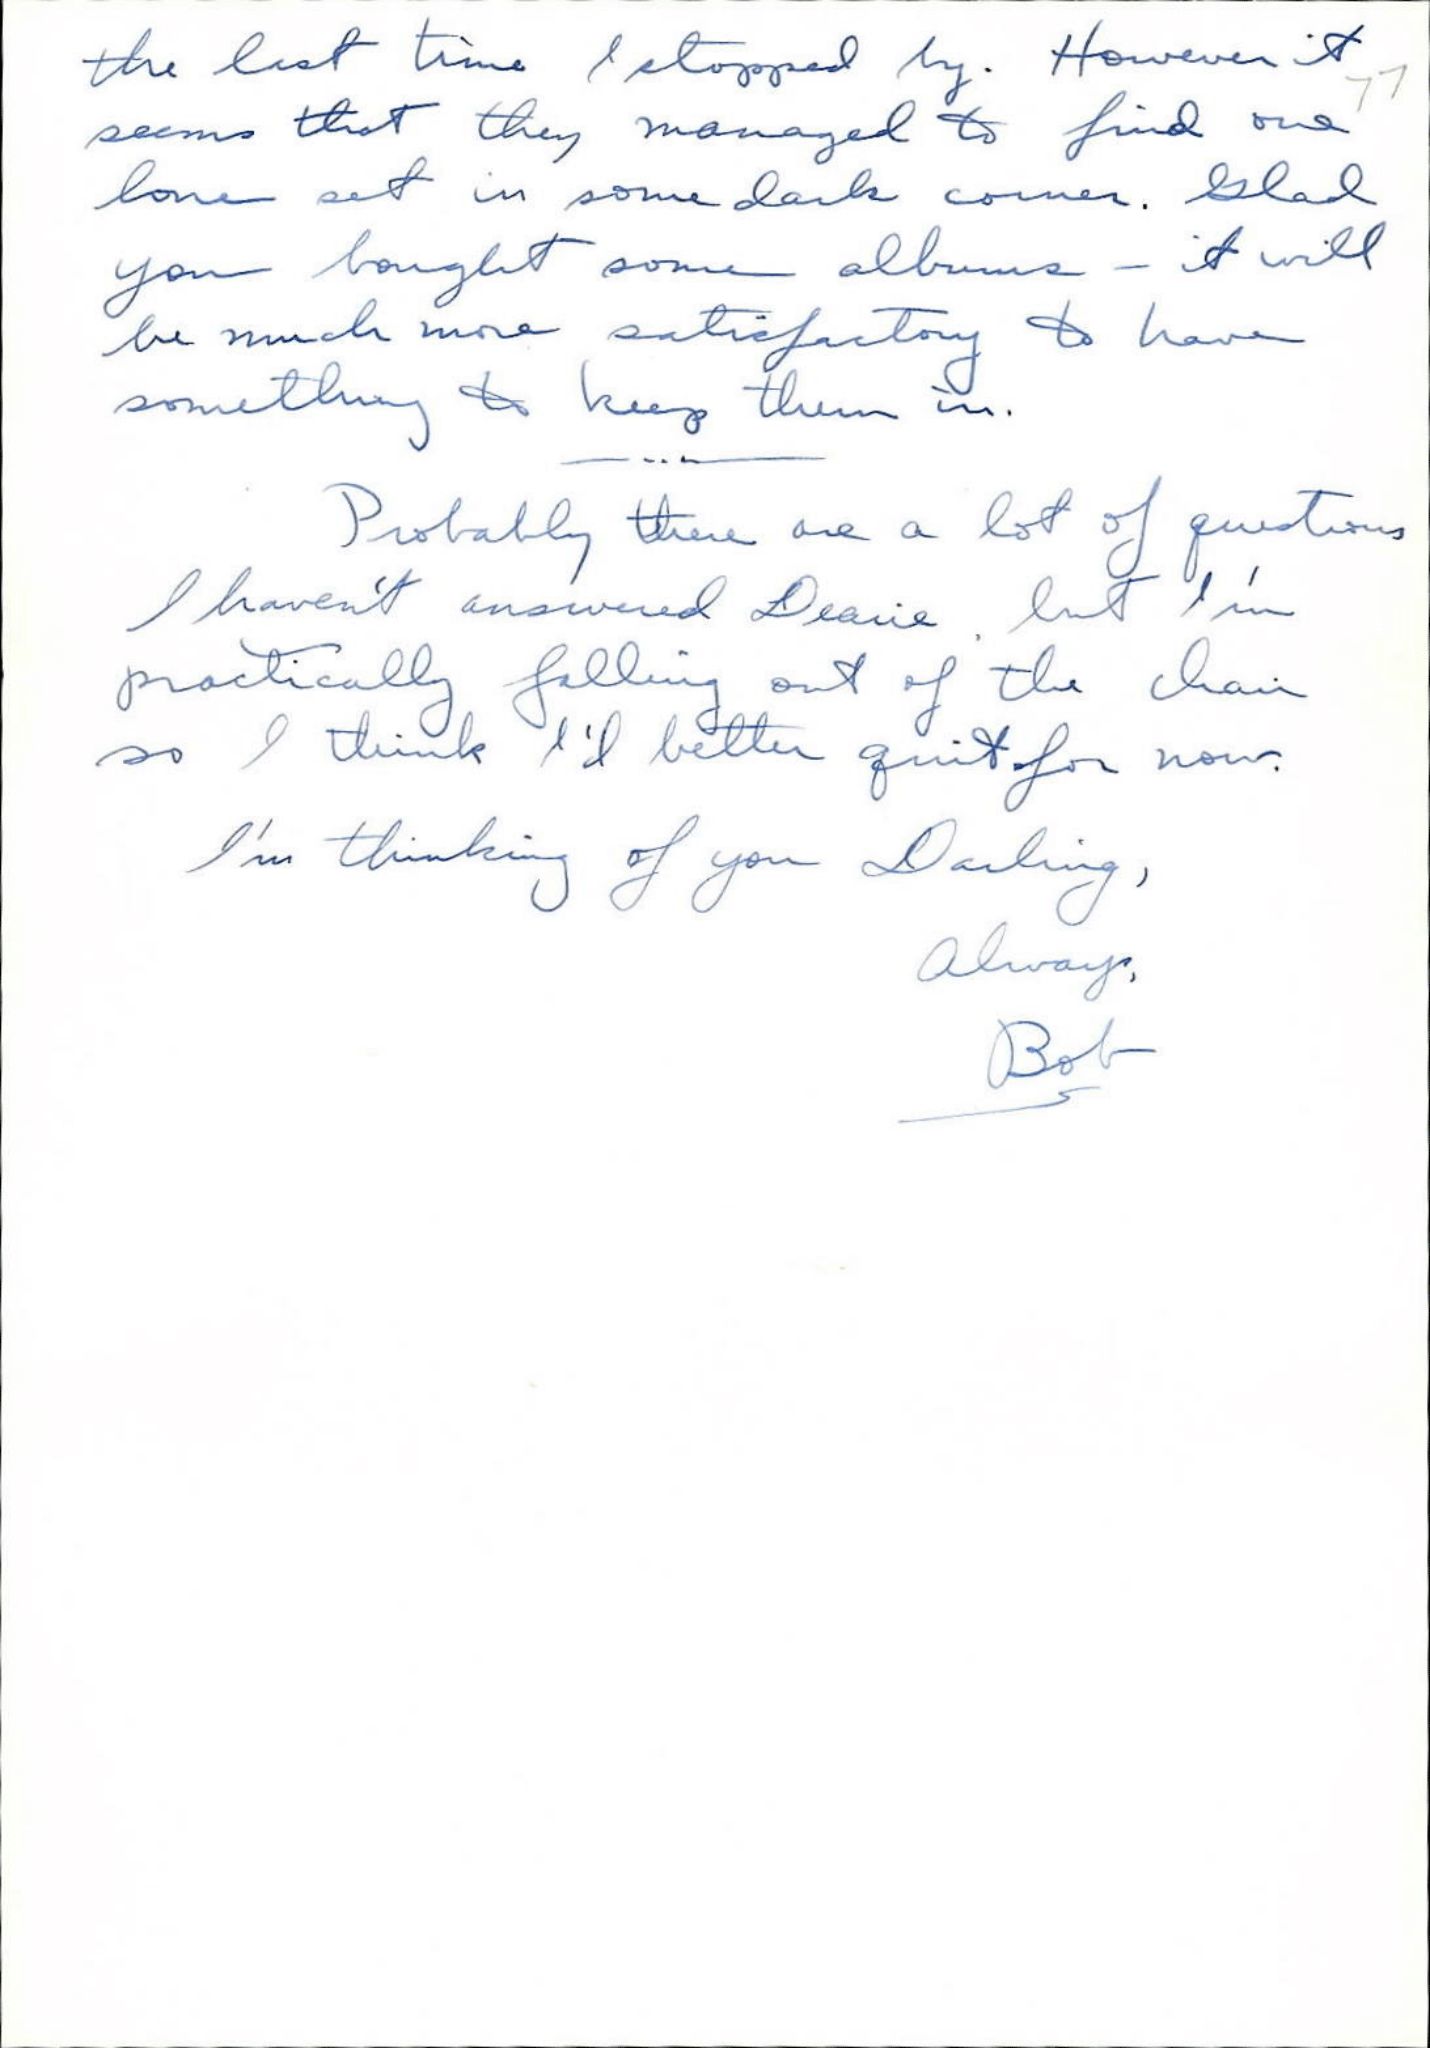 the last time I stopped by. However it
77
seems that they managed to find one
lone set in some dark corner. Glad
you bought some albums - it will
be much more satisfactory to have
something to keep them in.
Probably there are a lot of questions
I haven't answered Dearie, but I'm
practically falling out of the chair
so I think I'd better quit for now.
I'm thinking of you Darling,
Always,
Bob